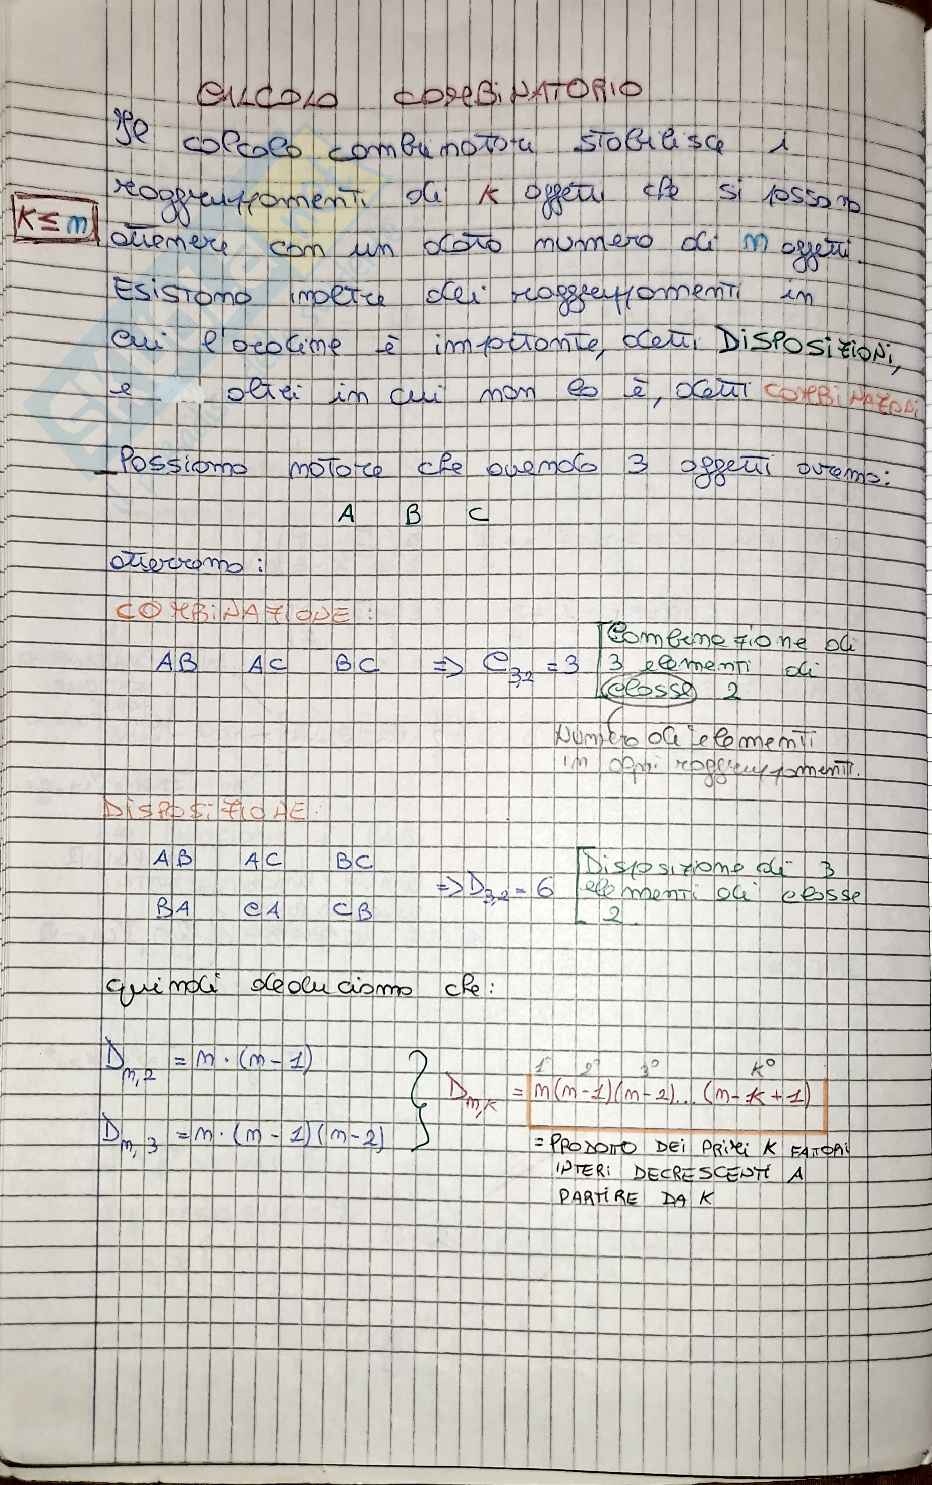 CALCOLO COMBINATORIO
Il calcolo combinatorio stabilisce i
raggruppamenti di K oggetti che si possono
K ≤ n
ottenere con un dato numero di n oggetti.
Esistono inoltre dei raggruppamenti in
cui l'ordine è importante, detti DISPOSIZIONI,
e altri in cui non lo è, detti COMBINAZIONI
Possiamo notare che avendo 3 oggetti avremo:
A B C
otterremo:
COMBINAZIONE:
AB AC BC => C3,2 = 3
Combinazione di
3 elementi di
classe 2
Numero di elementi
in ogni raggruppamenti.
DISPOSIZIONE:
AB AC BC
BA CA CB
=> D3,2 = 6
Disposizione di 3
elementi di classe
2
quindi deduciamo che:
Dn,2 = n · (n - 1)
Dn,3 = n · (n - 1)(n - 2)
1° 2° 3° K°
Dn,K = n(n-1)(n-2)...(n-K+1)
= PRODOTTO DEI PRIMI K FATTORI
INTERI DECRESCENTI A
PARTIRE DA K